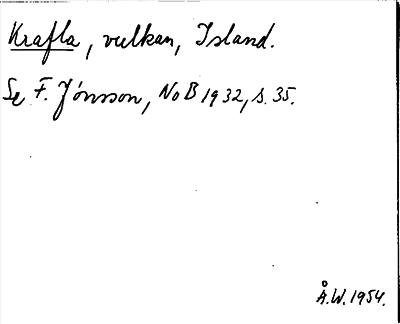 Krafla, vulkan, Island.
Se F. Jónsson, NoB 1932, s. 35.
Å.W. 1954.